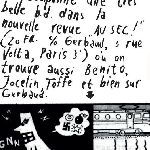 une très
belle b.d. dans la
nouvelle revue "AU SEC!"
(20 FR. % Gerbaud, 5 rue
Volta, Paris 3°) où on
trouve aussi Benito,
Jocelin, Toffe et bien sur
Gerbaud.
GNN